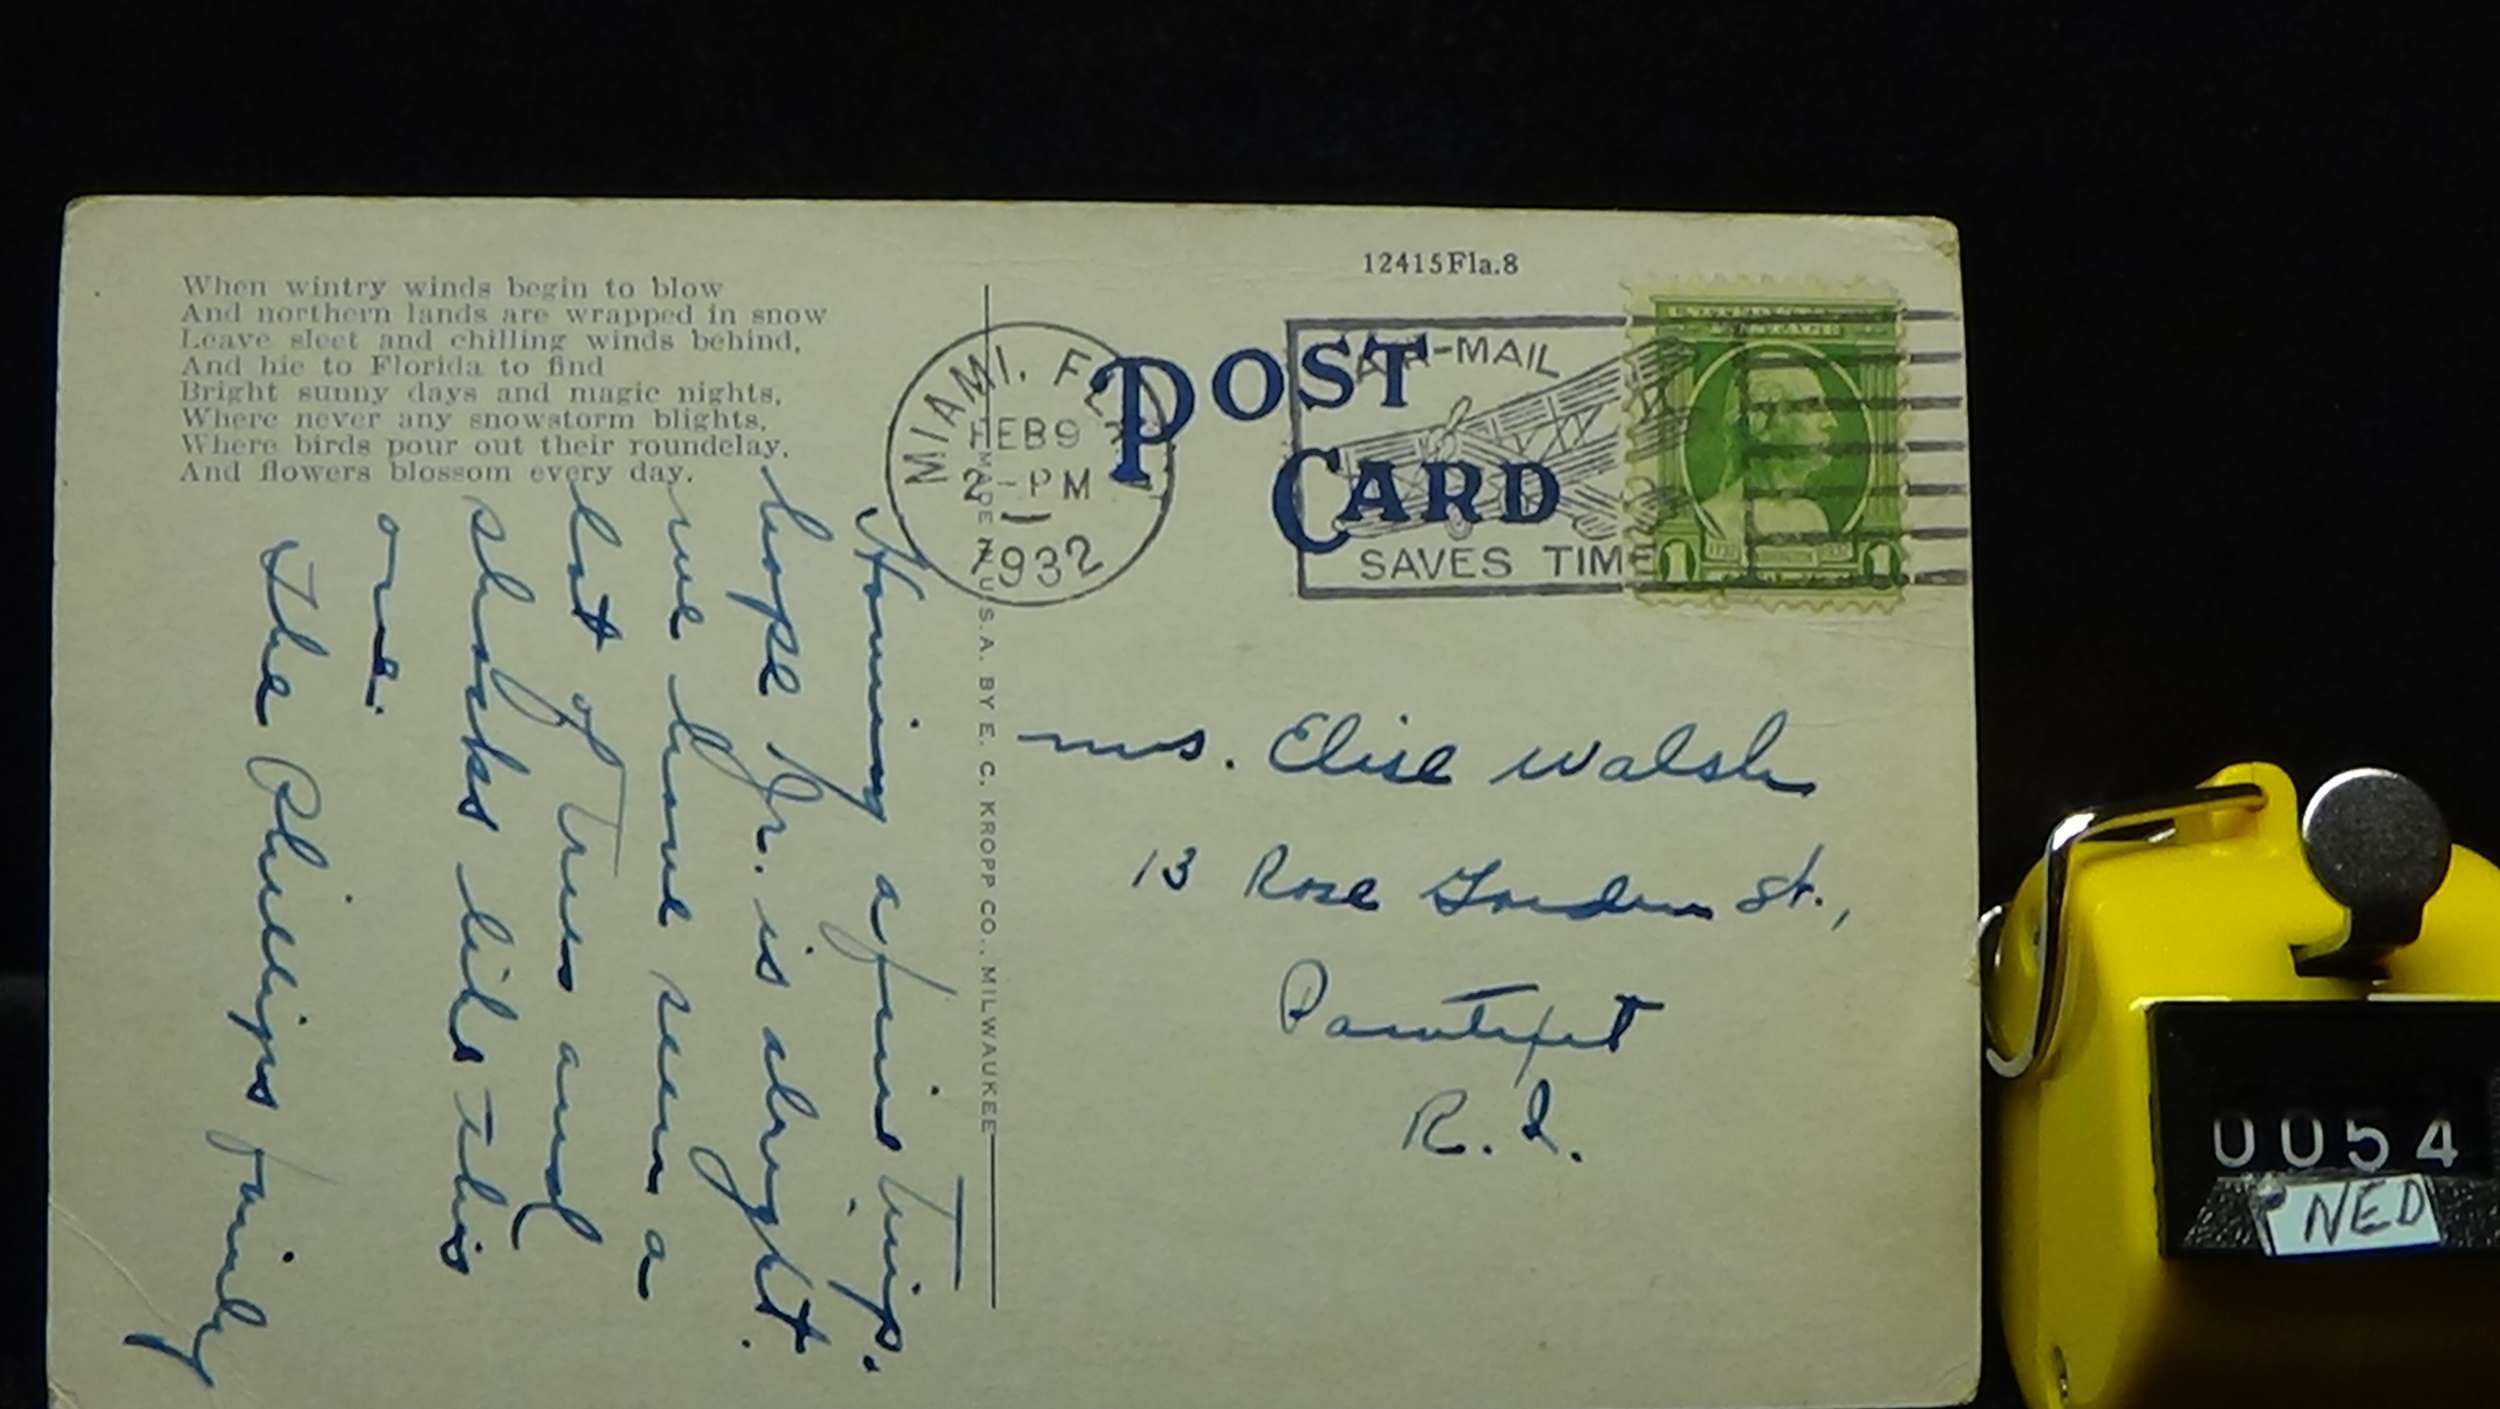 When wintry winds begin to blow
And northern lands are wrapped in snow
Leave sleet and chilling winds behind,
And hie to Florida to find
Bright sunny days and magic nights,
Where never any snowstorm blights,
Where birds pour out their roundelay,
And flowers blossom every day.
Having a fine trip.
hope Jr. is alright.
We have seen a
lot of trees and
shacks like this
one.
The Phillips family
MADE IN U.S.A. BY E. C. KROPP CO., MILWAUKEE
12415Fla.8
POST
CARD
MIAMI, FLA.
FEB 9
2 - PM
1932
AIR-MAIL
SAVES TIME
1 1
Mrs. Elise Walsh
13 Rose Garden St.,
Pawtuxet
R.I.
0054
NED